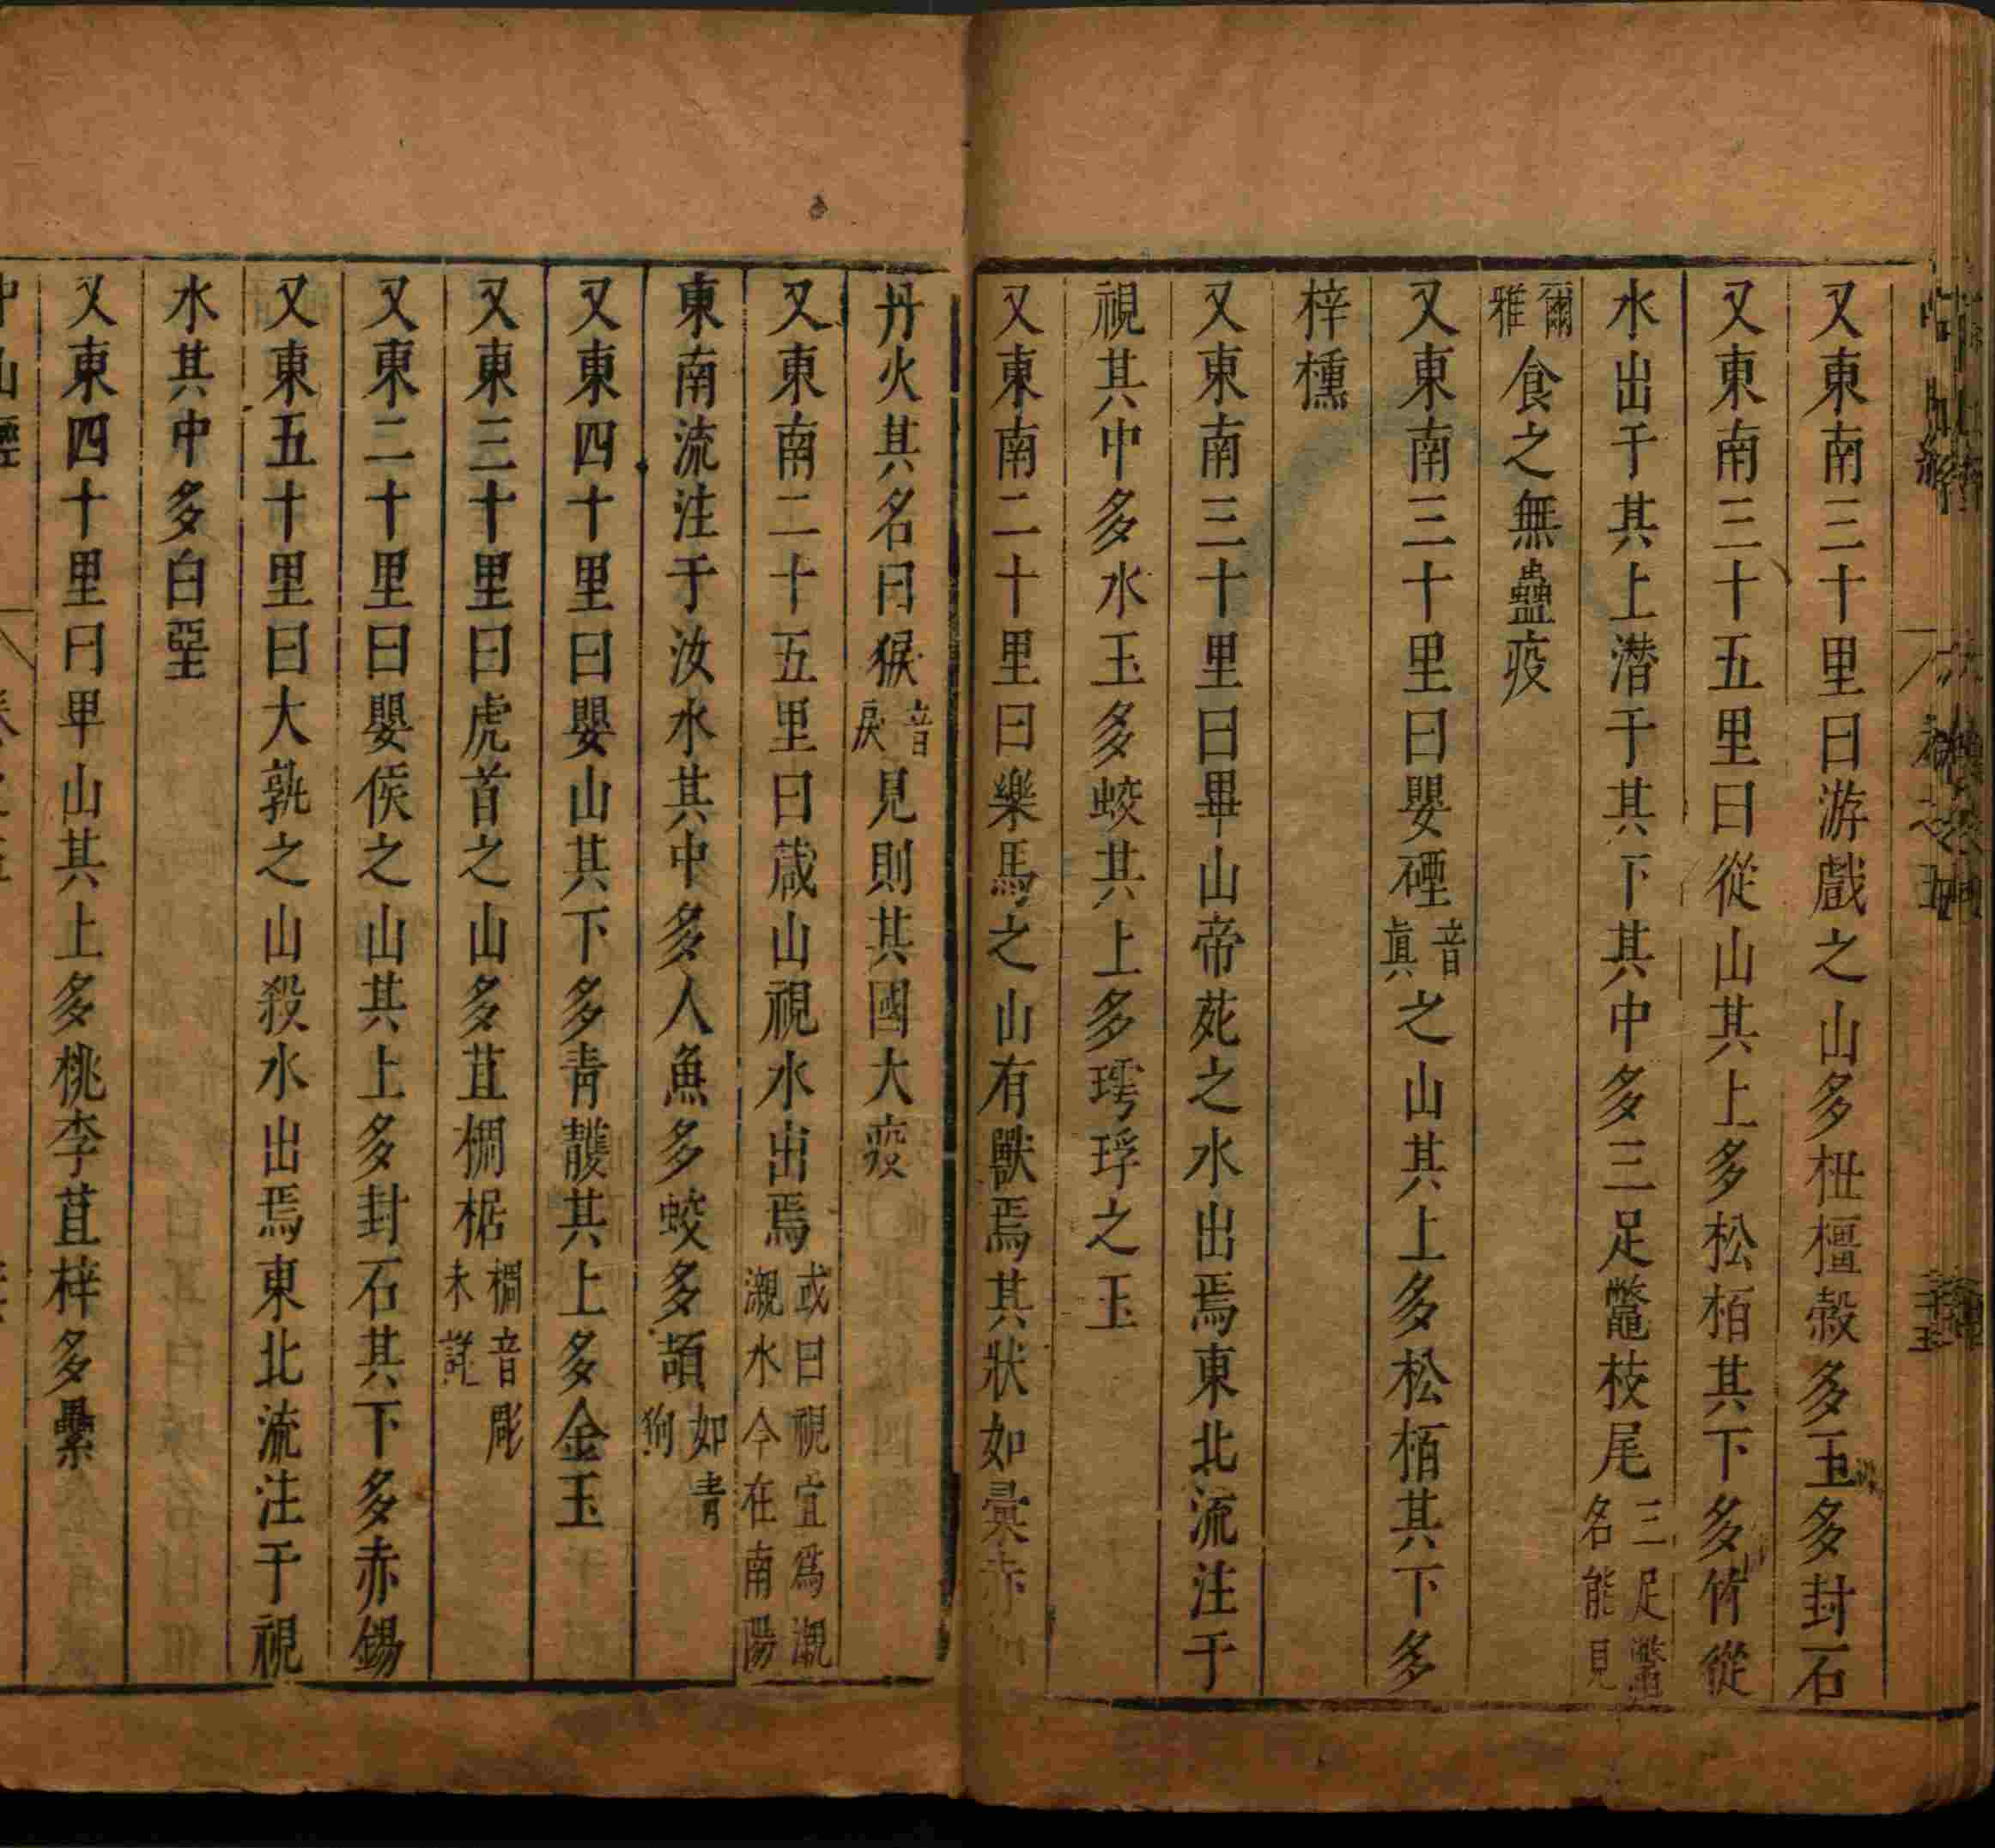 又東南三十里曰游戲之山多杻橿榖多玉多封石
又東南三十五里曰從山其上多松栢其下多竹從
水出于其上潜于其下其中多三足鼈枝尾三足鼈名能見
爾雅食之無蠱疫
又東南三十里曰嬰䃌音真之山其上多松栢其下多
梓櫄
又東南三十里曰畢山帝苑之水出焉東北流注于
視其中多水玉多蛟其上多㻬琈之玉
又東南二十里曰樂馬之山有獸焉其狀如彙赤如
丹火其名曰㺉音戾見則其國大疫
又東南二十五里曰葴山視水出焉或曰視宜爲瀙瀙水今在南陽
東南流注于汝水其中多人魚多蛟多頡如青狗
又東四十里曰嬰山其下多青雘其上多金玉
又東三十里曰虎首之山多苴椆椐椆音彫未詳
又東二十里曰嬰侯之山其上多封石其下多赤錫
又東五十里曰大孰之山殺水出焉東北流注于視
水其中多白堊
又東四十里曰卑山其上多桃李苴梓多纍
中山經